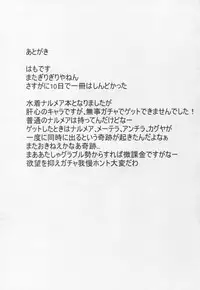 あとがき
はもです
またぎりぎりやねん
さすがに10日で一冊はしんどかった
水着ナルメア本となりましたが
肝心のキャラですが、無事ガチャでゲットできませんでした!
普通のナルメアは持ってんだけどなー
ゲットしたときはナルメア、メーテラ、アンチラ、カグヤが
一度に同時に出るという奇跡が起きたんだよなぁ
またおきねえかなあ奇跡…
まああたしゃグラブル勢からすれば微課金ですがなー
欲望を抑えガチャ我慢ホント大変だわ